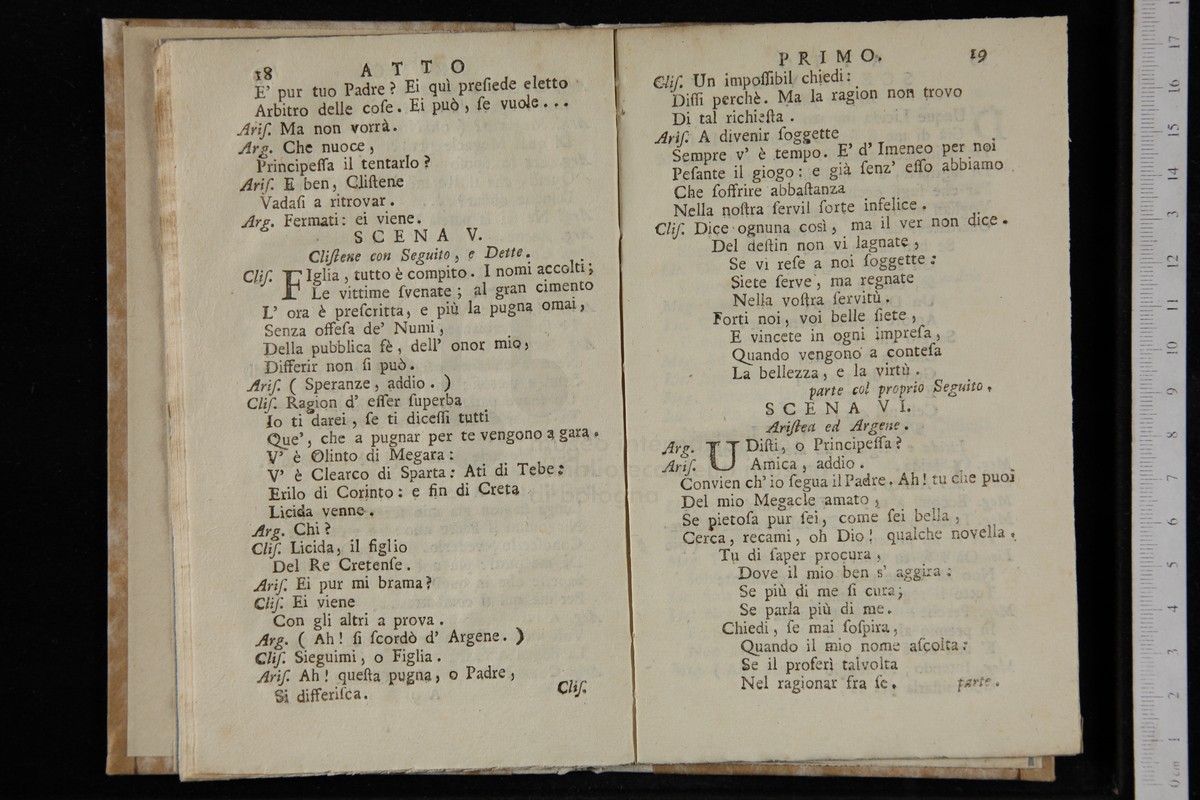 18 ATTO
E' pur tuo Padre? Ei quì preſiede eletto
Arbitro delle coſe. Ei può, ſe vuole...
Ariſ. Ma non vorrà.
Arg. Che nuoce,
Principeſſa il tentarlo?
Ariſ. E ben, Cliſtene
Vadaſi a ritrovar.
Arg. Fermati: ei viene.
SCENA V.
Cliſtene con Seguito, e Dette.
Cliſ. FIglia, tutto è compito. I nomi accolti;
Le vittime ſvenate; al gran cimento
L' ora è preſcritta, e più la pugna omai,
Senza offeſa de' Numi,
Della pubblica fè, dell' onor mio,
Differir non ſi può.
Ariſ. (Speranze, addio.)
Cliſ. Ragion d' eſſer ſuperba
Io ti darei, ſe ti diceſſi tutti
Que', che a pugnar per te vengono a gara.
V' è Olinto di Megara:
V' è Clearco di Sparta: Ati di Tebe:
Erilo di Corinto: e fin di Creta
Licida venne.
Arg. Chi?
Cliſ. Licida, il figlio
Del Re Cretenſe.
Ariſ. Ei pur mi brama?
Cliſ. Ei viene
Con gli altri a prova.
Arg. (Ah! ſi ſcordò d' Argene.)
Cliſ. Sieguimi, o Figlia.
Ariſ. Ah! queſta pugna, o Padre,
Si differiſca.
Cliſ.
PRIMO. 19
Cliſ. Un impoſſibil chiedi:
Diſſi perchè. Ma la ragion non trovo
Di tal richieſta.
Ariſ. A divenir ſoggette
Sempre v' è tempo. E' d' Imeneo per noi
Peſante il giogo: e già ſenz' eſſo abbiamo
Che ſoffrire abbaſtanza
Nella noſtra ſervil ſorte infelice.
Cliſ. Dice ognuna così, ma il ver non dice.
Del deſtin non vi lagnate,
Se vi reſe a noi ſoggette:
Siete ſerve, ma regnate
Nella voſtra ſervitù.
Forti noi, voi belle ſiete,
E vincete in ogni impreſa,
Quando vengono a conteſa
La bellezza, e la virtù.
parte col proprio Seguito.
SCENA VI.
Ariſtea ed Argene.
Arg. UDiſti, o Principeſſa?
Ariſ. Amica, addio.
Convien ch' io ſegua il Padre. Ah! tu che puoi
Del mio Megacle amato,
Se pietoſa pur ſei, come ſei bella,
Cerca, recami, oh Dio! qualche novella.
Tu di ſaper procura,
Dove il mio ben s' aggira:
Se più di me ſi cura;
Se parla più di me.
Chiedi, ſe mai ſoſpira,
Quando il mio nome aſcolta:
Se il proferì talvolta
Nel ragionar fra ſe. parte.